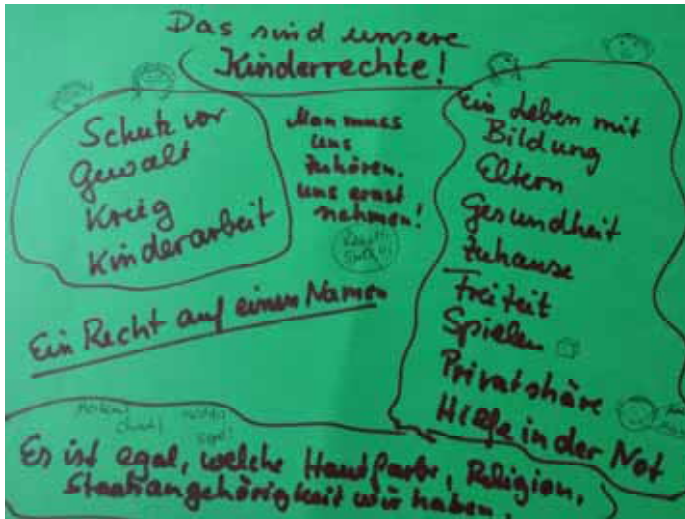 Das sind unsere
Kinderrechte!
Schutz vor
Gewalt
Kreig
Kinderarbeit
Man muss
uns
zuhören.
uns ernst
nehmen!
Ein Leben mit
Bildung
Eltern
Gesundheit
Zuhause
Freizeit
Spielen
Privatshäre
Hilfe in der Not
Ein Recht auf einen Namen
Es ist egal, welche Hautfarbe, Religion,
Staatsangehörigkeit wir haben.